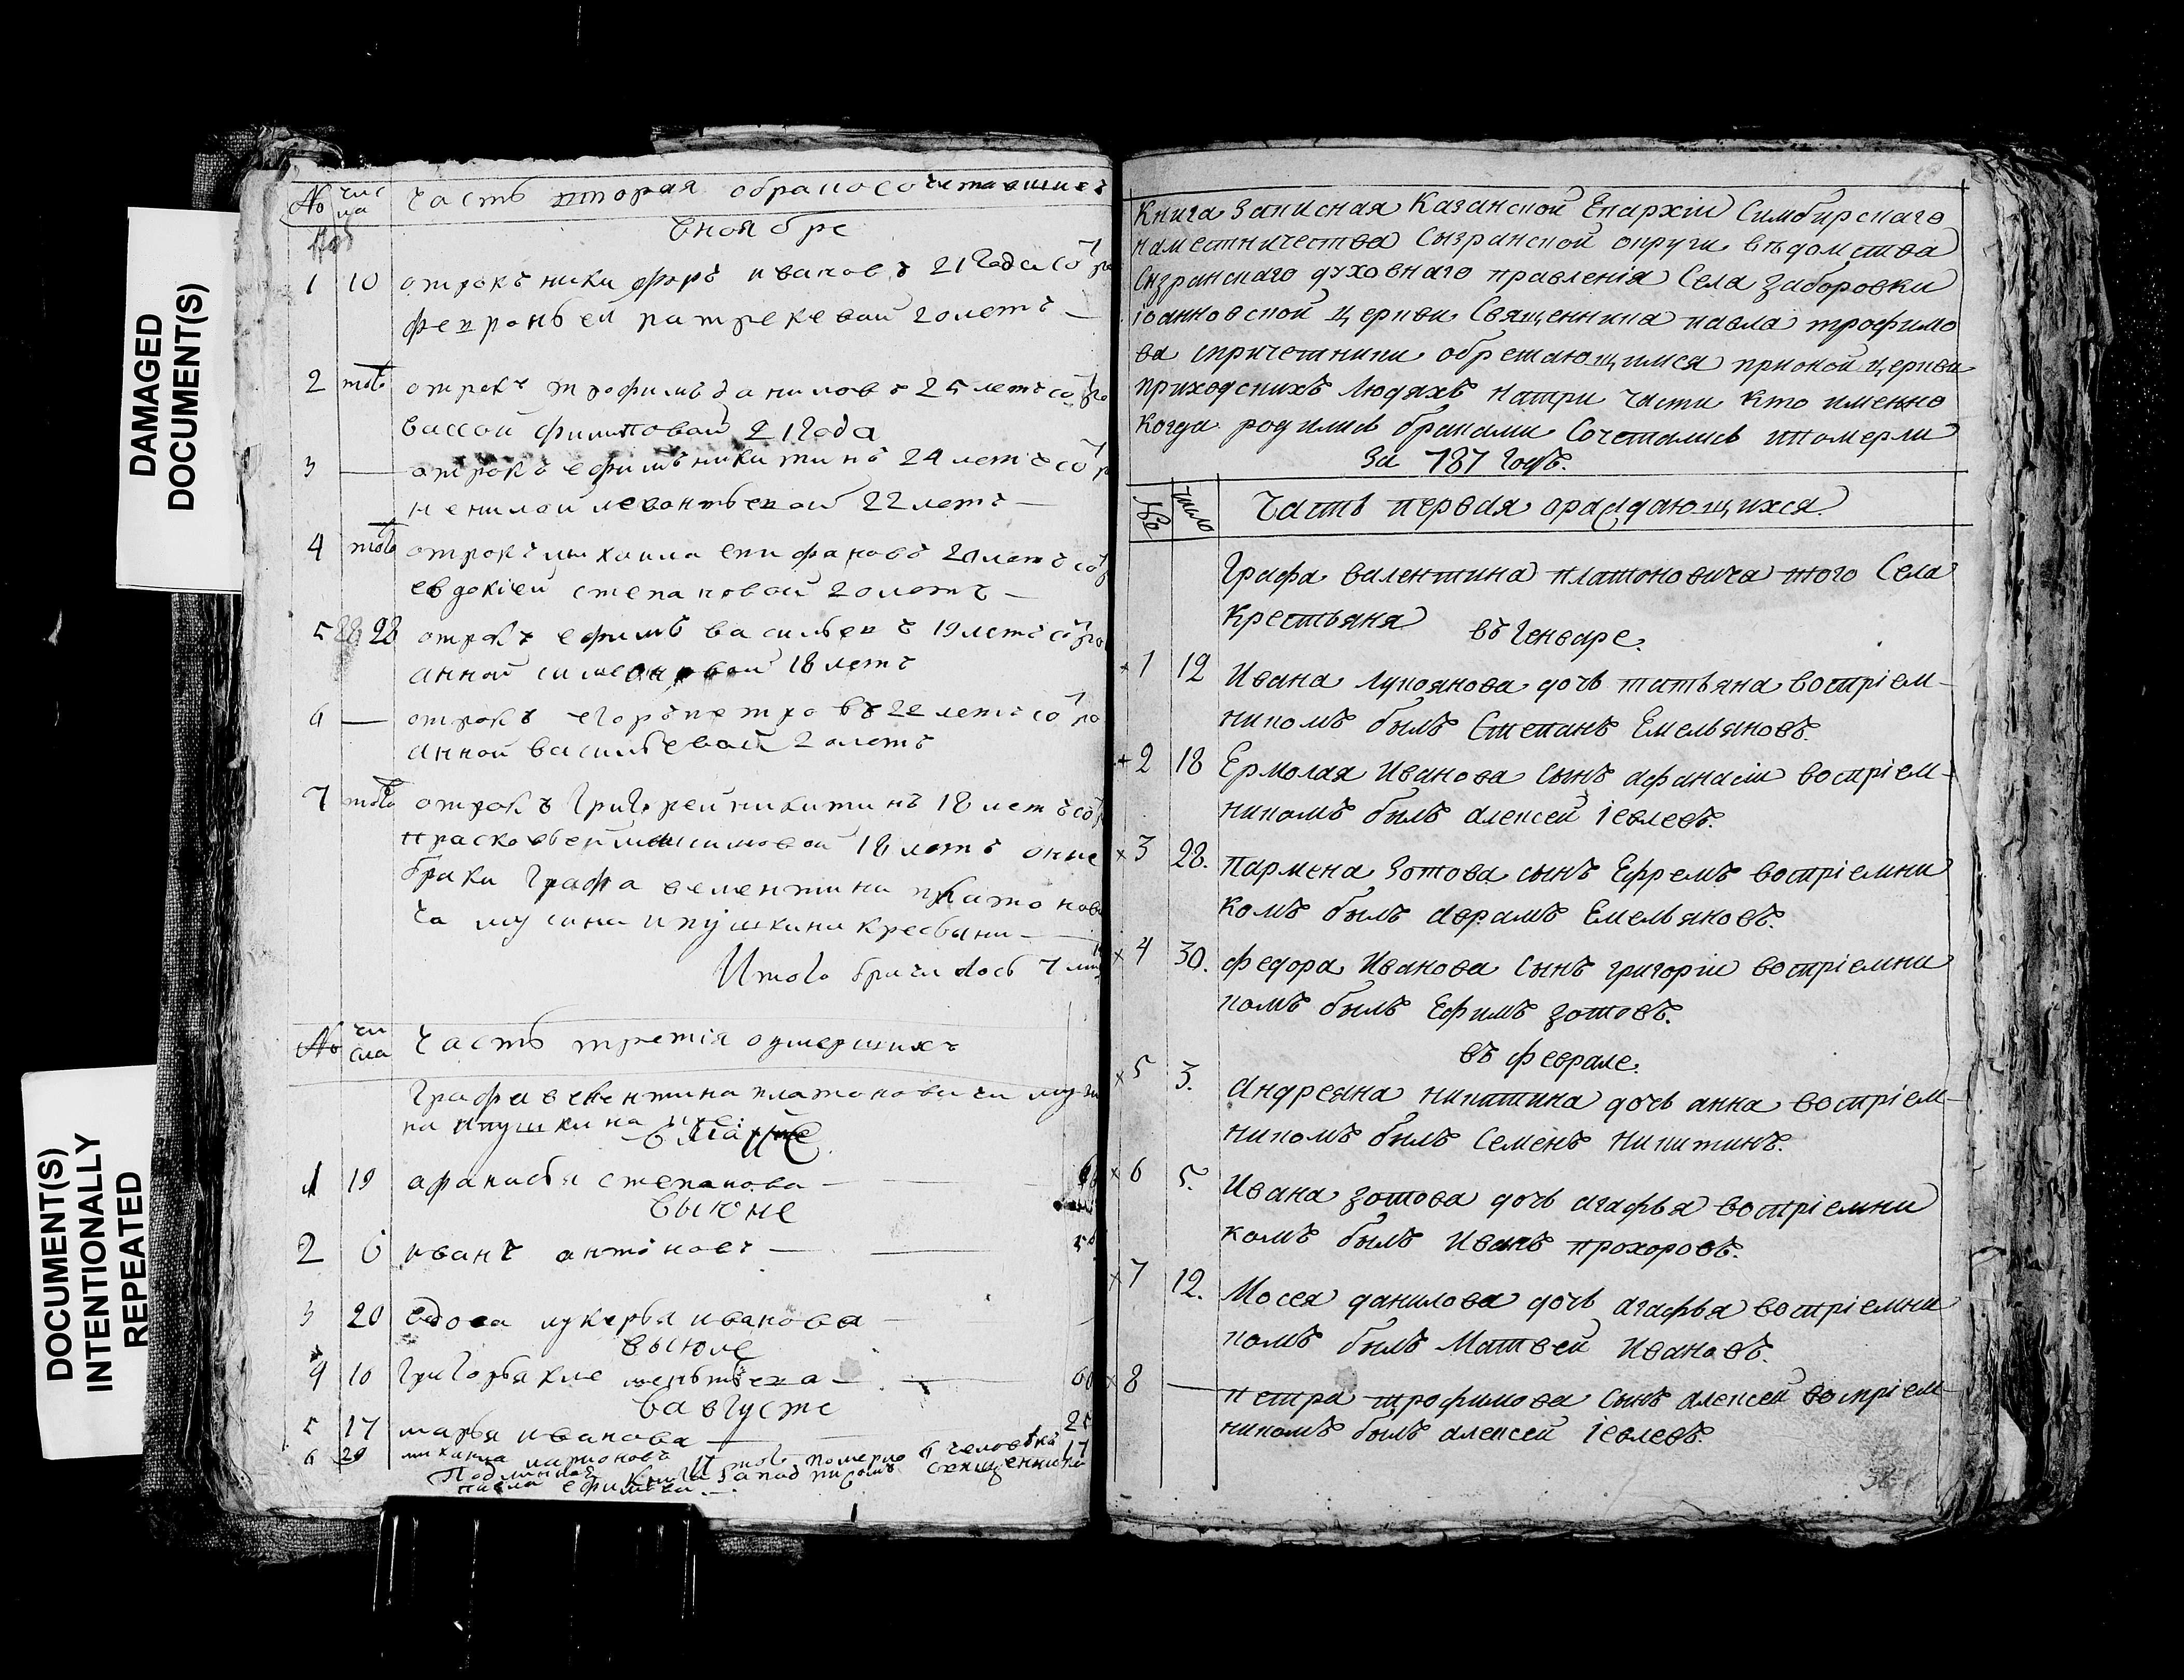 DAMAGED
DOCUMENT(S)
DOCUMENT(S)
INTENTIONALLY
REPEATED
№ чис
ла
Часть вторая обракосочитавшихъ
Вноябре
1 10 отрокъ никифоръ ивановъ 21 года со
февроньей патрекевой 20 летъ —
2 того отрокъ трофимъ даниловъ 25 летъ со
вассой филиповой 21 года
3 — отрокъ ефимъ никитинъ 24 летъ со
ненилой левонтьевой 22 летъ —
4 того отрокъ михаила епифановъ 20 летъ со
евдокіеи степановой 20 летъ —
5 28 отрокъ ефимъ васильевъ 19 летъ со
анной симеоновой 18 летъ
6 — отрокъ егоръ петровъ 22 летъ со
анной васильевой 20 летъ
7 того отрокъ григорей никитинъ 18 летъ со
прасковьей максимовой 18 летъ оные
браки графа велентина платонов
ча мусина и пушкина кресьяни —
Итого брачилось 7
№ чи
сла
Часть третія оумершихъ
Графа велентина платоновича муси
на ипушкина
Вмарте
1 19 афанисья степанова —
Выюне
2 6 иванъ антоновъ —
3 20 вдова лукерья иванова —
Выюле
4 10 Григорья клементьева — 60
Вавгусте
5 17 марья иванова — 25
6 29 михаила ларионовъ 17
Итого померло 6 человекъ
Подлинная книга заподписомъ священника
павла ефимова —
Книга Записная Казанской Епархіи Симбирскаго
наместничества Сызранской округи въдомства
Сызранскаго духовнаго правленія Села Заборовки
іоанновской церкви Священника павла трофимо
ва спричетники обретающимся прионой церкви
приходскихъ людяхъ натри части кто именно
когда родились браками Сочетались ипомерли
За 787 годъ.
№ число
Часть первая ораждающихся
Графа валентина платоновича того Села
Крестьяна
въ Генваре.
+ 1 12 Ивана лукоянова дочь татьяна воспріем-
никомъ былъ Степанъ Емельяновъ.
+ 2 18 Ермолая Иванова Сынъ афанасіи воспріем-
никомъ былъ алексей іевлевъ.
× 3 28. пармена Зотова сынъ Ефремъ воспріемни
комъ былъ аврамъ Емельяновъ.
× 4 30. федора Иванова Сынъ григоріи воспріемни
комъ былъ Ефимъ зотовъ.
въ феврале.
× 5 3. андреяна никитина дочь анна воспріем-
никомъ былъ Семенъ Никитинъ.
× 6 5. Ивана зотова дочь агафья воспріемни
комъ былъ Иванъ прохоровъ.
× 7 12. Мосея данилова дочь агафья воспріемни
комъ былъ Матвей Ивановъ.
× 8 — петра трофимова Сынъ алексей воспріем-
никомъ былъ алексей іевлевъ.